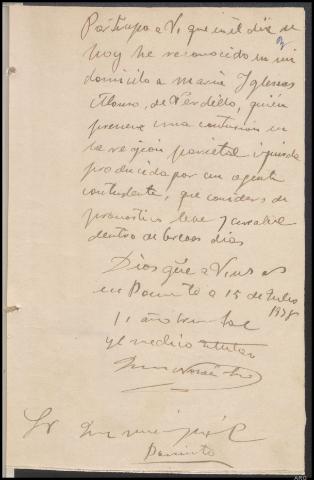 Participo a V. que en el día de
hoy he reconocido en mi
domicilio a Maria Iglesias
Alonso, de Verdillo, quién
presenta una contusión en
la región parietal izquierda
producida por un agente
contundente, que considero de
pronostico leve y curable
dentro de breves dias
Dios gue a V. muchos
en Porriño a 15 de Julio
1938
II año triunfal
y el medico titular
Sr
Porriño